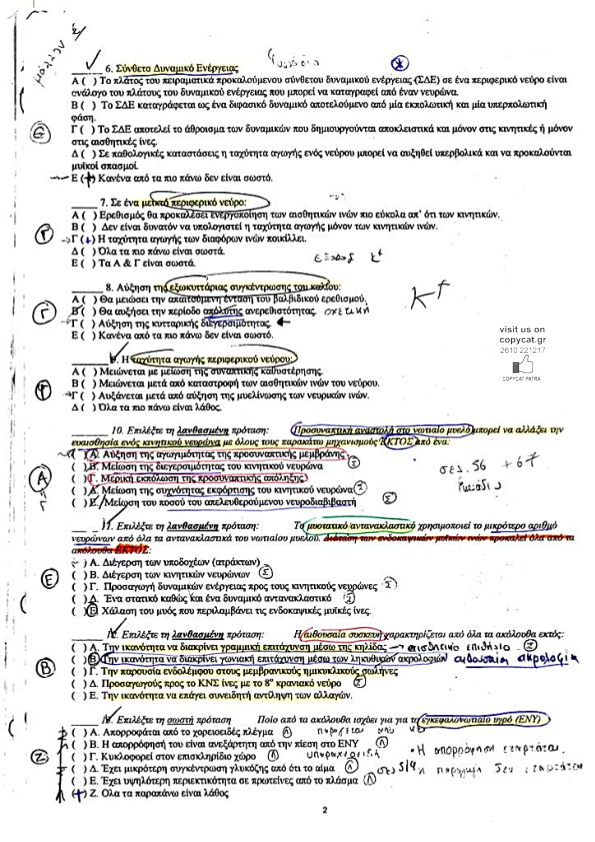 μάλλον
6. Σύνθετο Δυναμικό Ενέργειας
Α ( ) Το πλάτος του πειραματικά προκαλούμενου σύνθετου δυναμικού ενέργειας (ΣΔΕ) σε ένα περιφερικό νεύρο είναι
ανάλογο του πλάτους του δυναμικού ενέργειας που μπορεί να καταγραφεί από έναν νευρώνα.
Β ( ) Το ΣΔΕ καταγράφεται ως ένα διφασικό δυναμικό αποτελούμενο από μία εκπολωτική και μία υπερπολωτική
φάση.
Γ ( ) Το ΣΔΕ αποτελεί το άθροισμα των δυναμικών που δημιουργούνται αποκλειστικά και μόνον στις κινητικές ή μόνον
στις αισθητικές ίνες.
Δ ( ) Σε παθολογικές καταστάσεις η ταχύτητα αγωγής ενός νεύρου μπορεί να αυξηθεί υπερβολικά και να προκαλούνται
μυϊκοί σπασμοί.
Ε (+) Κανένα από τα πιο πάνω δεν είναι σωστό.
7. Σε ένα μεικτό περιφερικό νεύρο:
Α ( ) Ερεθισμός θα προκαλέσει ενεργοποίηση των αισθητικών ινών πιο εύκολα απ' ότι των κινητικών.
Β ( ) Δεν είναι δυνατόν να υπολογιστεί η ταχύτητα αγωγής μόνον των κινητικών ινών.
Γ Γ (+) Η ταχύτητα αγωγής των διαφόρων ινών ποικίλλει.
Δ ( ) Όλα τα πιο πάνω είναι σωστά.
Ε ( ) Τα Α & Γ είναι σωστά.
8. Αύξηση της εξωκυττάριας συγκέντρωσης του καλίου:
Α ( ) Θα μειώσει την απαιτούμενη ένταση του βαλβιδικού ερεθισμού.
K+
Β ( ) Θα αυξήσει την περίοδο απόλυτης ανερεθιστότητας. σχετική
Γ Γ ( ) Αύξηση της κυτταρικής διεγερσιμότητας.
Ε ( ) Κανένα από τα πιο πάνω δεν είναι σωστό.
visit us on
copycat.gr
2610 221217
COPYCAT PATRA
9. Η ταχύτητα αγωγής περιφερικού νεύρου:
Α ( ) Μειώνεται με μείωση της συναπτικής καθυστέρησης.
Β ( ) Μειώνεται μετά από καταστροφή των αισθητικών ινών του νεύρου.
Γ Γ ( ) Αυξάνεται μετά από αύξηση της μυελίνωσης των νευρικών ινών.
Δ ( ) Όλα τα πιο πάνω είναι λάθος.
10. Επιλέξτε τη λανθασμένη πρόταση: Προσυναπτική αναστολή στο νωτιαίο μυελό μπορεί να αλλάξει την
ευαισθησία ενός κινητικού νευρώνα με όλους τους παρακάτω μηχανισμούς ΕΚΤΟΣ από ένα:
( ) Α. Αύξηση της αγωγιμότητας της προσυναπτικής μεμβράνης
( ) Β. Μείωση της διεγερσιμότητας του κινητικού νευρώνα Σ
σελ. 56 + 67
Α ( ) Γ. Μερική εκπόλωση της προσυναπτικής απόληξης
( ) Δ. Μείωση της συχνότητας εκφόρτισης του κινητικού νευρώνα Σ
( ) Ε. Μείωση του ποσού του απελευθερούμενου νευροδιαβιβαστή Σ
11. Επιλέξτε τη λανθασμένη πρόταση: Το μυοτατικό αντανακλαστικό χρησιμοποιεί το μικρότερο αριθμό
νευρώνων από όλα τα αντανακλαστικά του νωτιαίου μυελού. Διάταση των ενδοκαψικών μυϊκών ινών προκαλεί όλα από τα
ακόλουθα ΕΚΤΟΣ:
( ) Α. Διέγερση των υποδοχέων (ατράκτων)
Ε ( ) Β. Διέγερση των κινητικών νευρώνων Σ
( ) Γ. Προσαγωγή δυναμικών ενέργειας προς τους κινητικούς νευρώνες Σ
( ) Δ. Ένα στατικό καθώς και ένα δυναμικό αντανακλαστικό Σ
( ) Ε. Χάλαση του μυός που περιλαμβάνει τις ενδοκαψικές μυϊκές ίνες.
12. Επιλέξτε τη λανθασμένη πρόταση: Η αιθουσαία συσκευή χαρακτηρίζεται από όλα τα ακόλουθα εκτός:
( ) Α. Την ικανότητα να διακρίνει γραμμική επιτάχυνση μέσω της κηλίδας → αισθητικό επιθήλιο Σ
Β ( ) Β. Την ικανότητα να διακρίνει γωνιακή επιτάχυνση μέσω των ληκυθικών ακρολοφιών ακρολοφία
( ) Γ. Την παρουσία ενδολέμφου στους μεμβρανικούς ημικυκλικούς σωλήνες
( ) Δ. Προσαγωγούς προς το ΚΝΣ ίνες με το 8º κρανιακό νεύρο Σ
( ) Ε. Την ικανότητα να επάγει συνειδητή αντίληψη των αλλαγών.
Επιλέξτε τη σωστή πρόταση Ποίο από τα ακόλουθα ισχύει για για το εγκεφαλονωτιαίο υγρό (ΕΝΥ)
( ) Α. Απορροφάται από το χοριοειδές πλέγμα Λ παράγεται από
( ) Β. Η απορρόφησή του είναι ανεξάρτητη από την πίεση στο ΕΝΥ Λ
Ζ ( ) Γ. Κυκλοφορεί στον επισκληρίδιο χώρο Λ υπαραχνοειδή • Η απορρόφηση εξαρτάται
( ) Δ. Έχει μικρότερη συγκέντρωση γλυκόζης από ότι το αίμα Λ σελ 519 η παραγωγή δεν εξαρτάται
( ) Ε. Έχει υψηλότερη περιεκτικότητα σε πρωτεΐνες από το πλάσμα Λ
(+) Ζ. Όλα τα παραπάνω είναι λάθος
2